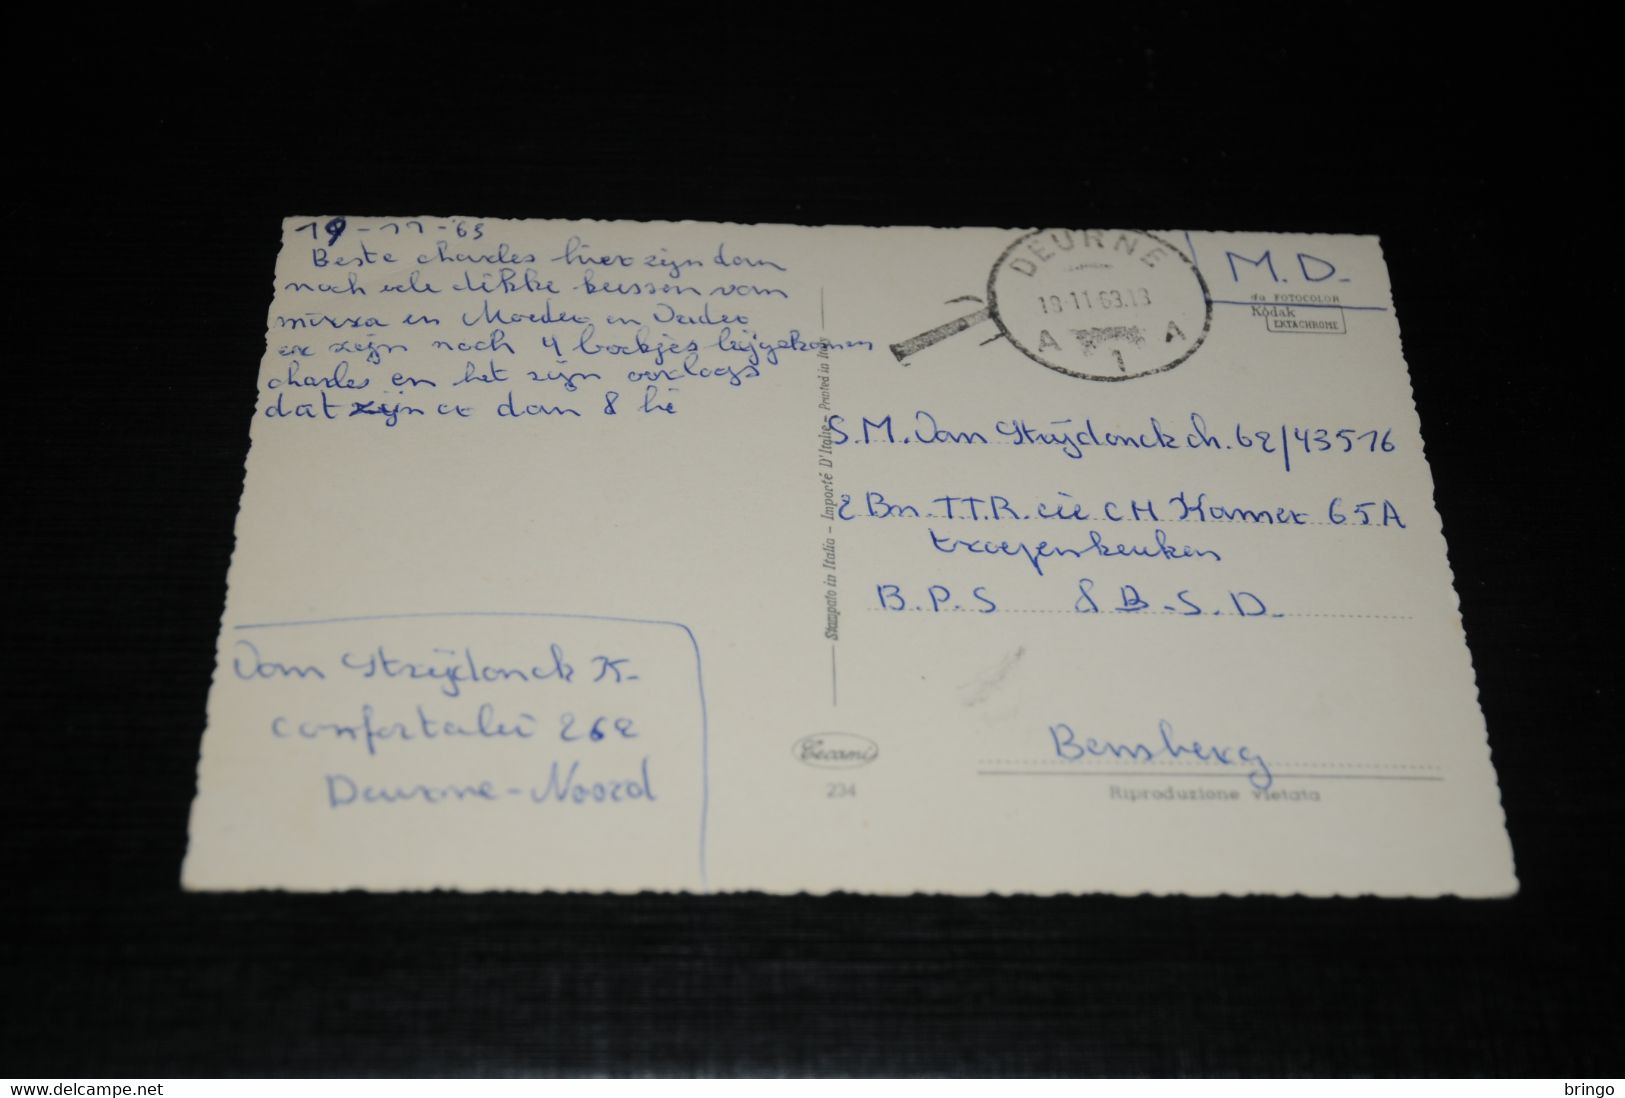 19-11-'63
Beste charles hier zijn dan
noch ele dikke kussen van
mirza en Moeder en Vader
er zijn noch 4 boekjes bijgekomen
charles en het zijn oorlogs
dat zijn er dan 8 hé
Van Strijdonck K-
confortalei 262
Deurne-Noord
DEURNE
18-11-63.18
A 1 A
1
M.D-
da FOTOCOLOR
Kodak
EKTACHROME
S.M. Van Strijdonck ch. 62/43516
2 Bn. T.T.R. cie C H Kamer 65A
troepenkeuken
B.P.S 8 B.S.D.
Bensberg
Stampato in Italia - Importé D'Italie - Printed in Italy
Cecami
234
Riproduzione vietata
Delcampe.net
bringo